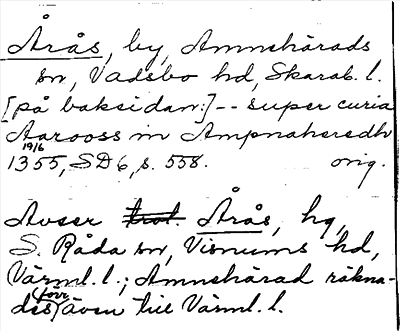 Årås, by, Amnehärads
sn, Vadsbo hd, Skarab. l.
[på baksidan:] -- super curia
Aarooss in Ampnaheredh
19/6
1355, SD 6, s. 558. orig.
Avser trol. Årås, hg,
S. Råda sn, Visnums hd,
Värml. l.; Amnehärad räkna-
des (förr) även till Värml. l.